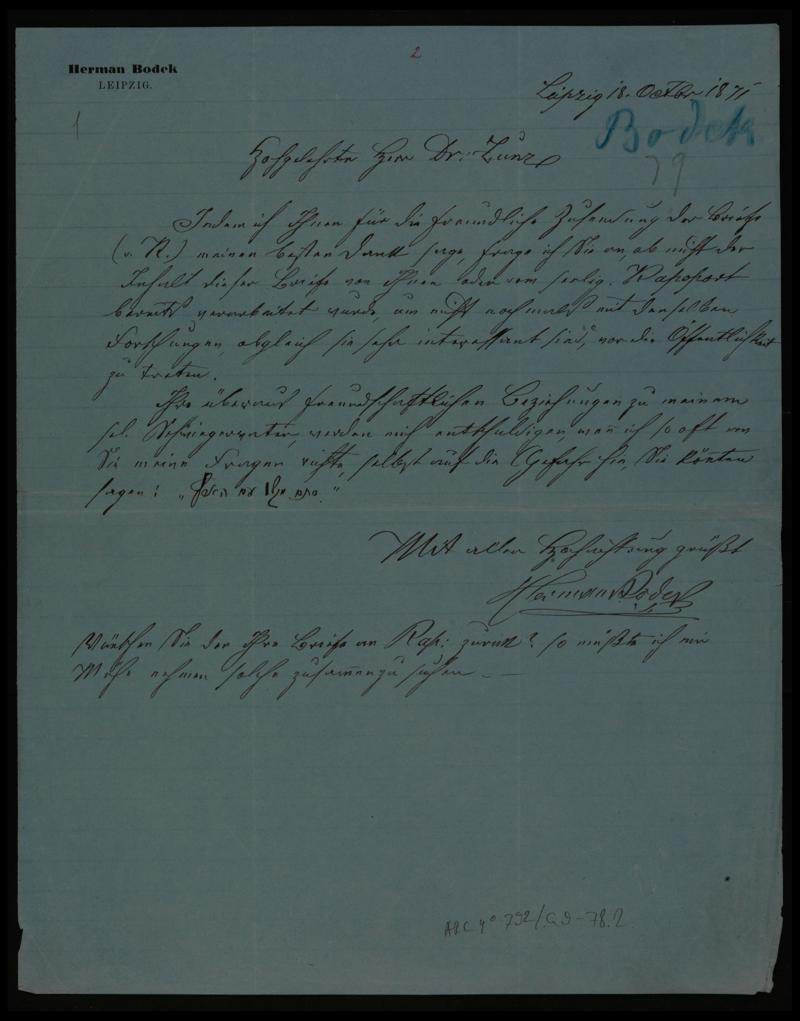 2
Herman Bodek
LEIPZIG.
Leipzig 18. Octbr 1871
1
Bodek
79
Hochgelehrter Herr Dr: Zunz
Indem ich Ihnen für die freundliche Zusendung der Briefe
(v. R.) meinen besten Dank sage, frage ich Sie an, ob nicht der
Inhalt dieser Briefe von Ihnen oder vom seelig. Rapoport
bereits verarbeitet wurde, um nicht nochmals mit denselben
Forschungen, obgleich sie sehr interessant sind, vor die Öffentlichkeit
zu treten.
Ihre überaus freundschaftlichen Beziehungen zu meinem
sel. Schwiegervater, werden mich entschuldigen wenn ich so oft an
Sie meine Fragen richte, selbst auf die Gefahr hin, Sie könten
sagen: „
Mit aller Hochachtung grüßt
Herman Bodek
Wünschen Sie den Ihre Briefe an Rap: zurück? so müßte ich mir
Mühe nehmen solche zusammenzusuchen —
ARC 4° 792/G9-78.2